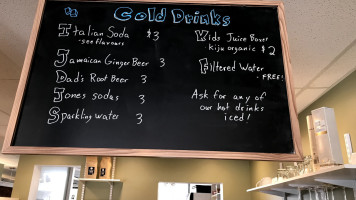 Cold Drinks
Italian Soda $3
-see flavours
Jamaican Ginger Beer 3
Dad's Root Beer 3
Jones sodas 3
Sparkling water 3
Kids Juice Boxes
-kiju organic $2
Filtered Water
-FREE!
Ask for any of
our hot drinks
iced!